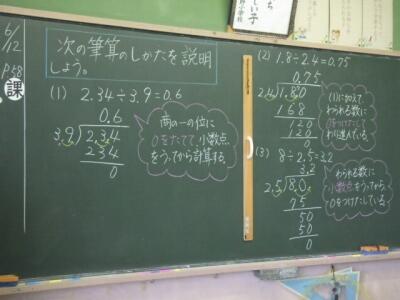 6/12
P68
課
次の筆算のしかたを説明
しよう。
(1) 2.34÷3.9=0.6
0.6
3.9)2.3.4
234
0
商の一の位に
0をたてて、小数点
をうってから計算する。
(2) 1.8÷2.4=0.75
0.75
2.4)1.8.0
168
120
120
0
(1)に加えて、
わられる数に
0をつけたして
わり進んでいる。
(3) 8÷2.5=3.2
3.2
2.5)8.0.
75
50
50
0
わられる数に
小数点をうってから、
0をつけたしている。